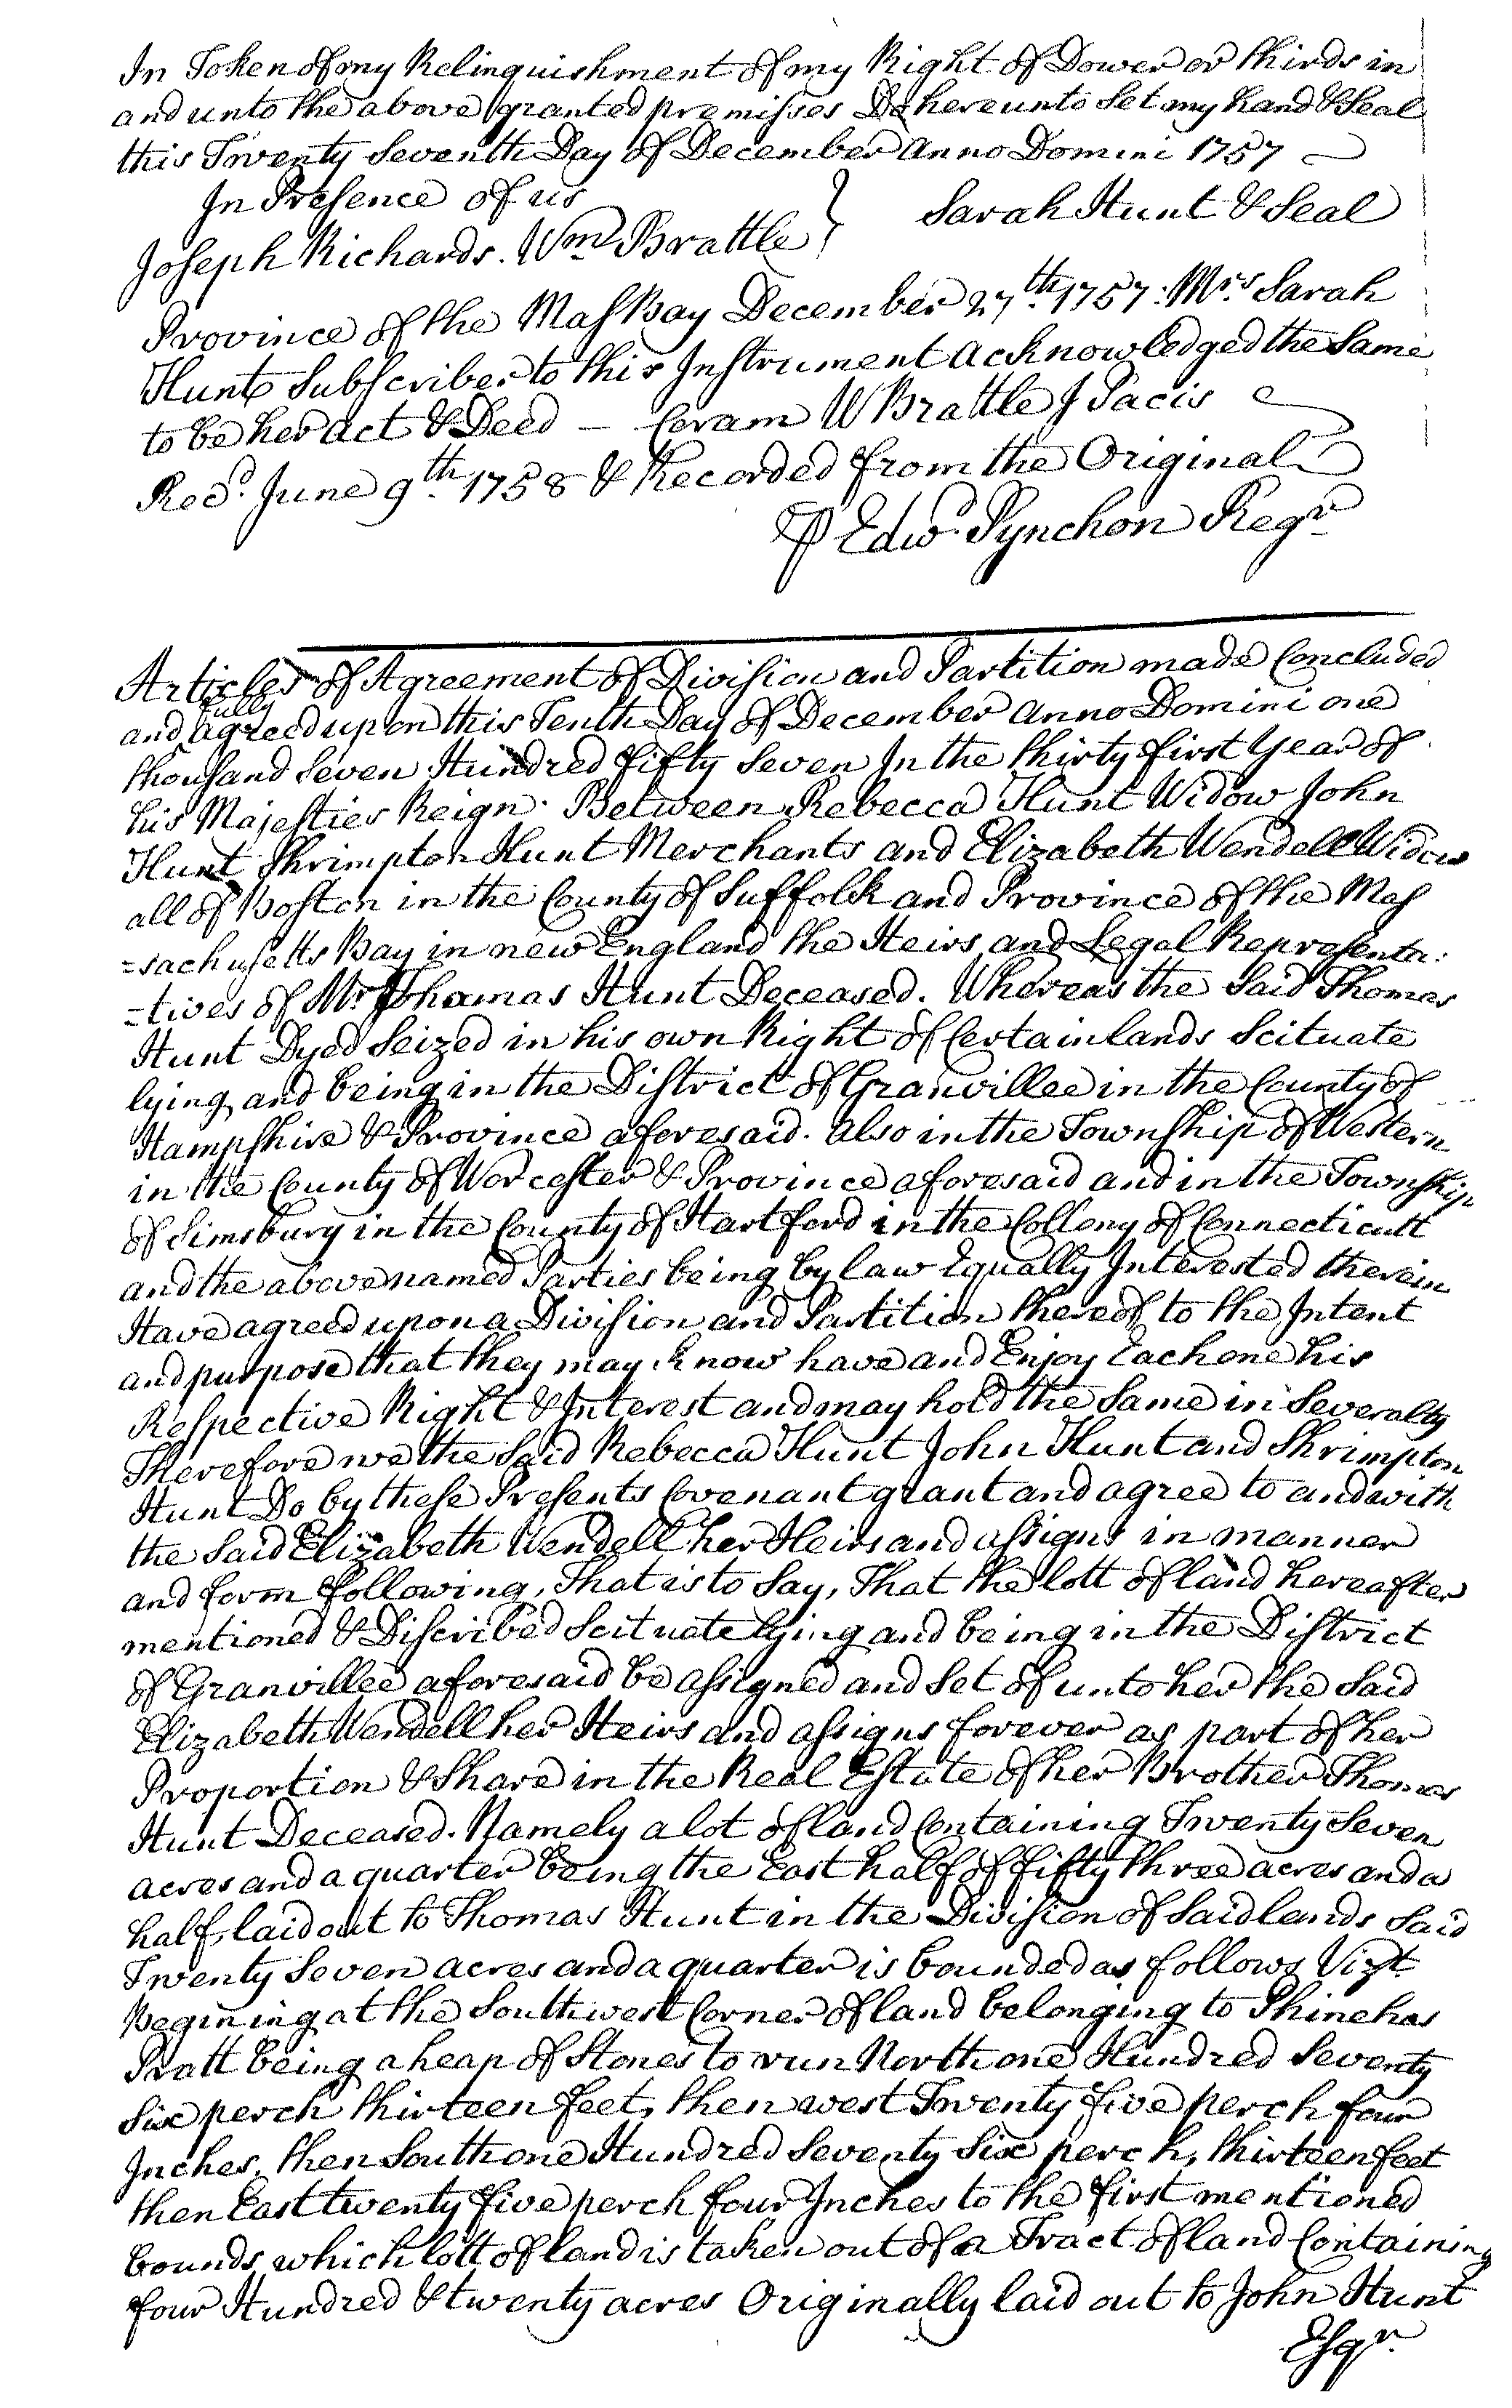 In Token of my Relinquishment of my Right of Dower or thirds in
and unto the above granted premisses Do hereunto Set my hand & Seal
this Twenty Seventh Day of December Anno Domini 1757
In Presence of us
Joseph Richards. Wm. Brattle } Sarah Hunt & Seal
Province of the Mas Bay December 27th. 1757. Mrs. Sarah
Hunt Subscriber to this Instrument acknowledged the Same
to be her act & Deed — Coram W Brattle J Pacis
Recd. June 9th. 1758 & Recorded from the Original
⅌ Edwd. Pynchon Regr.
Articles of Agreement of Division and Partition made Concluded
and fully agreed upon this Tenth Day of December Anno Domini one
thousand Seven Hundred fifty Seven In the thirty first Year of
his Majesties Reign. Between Rebecca Hunt Widow John
Hunt Shrimpton Hunt Merchants and Elizabeth Wendell Widow
all of Boston in the County of Suffolk and Province of the Mas
=sachusetts Bay in new England the Heirs and Legal Representa:
=tives of Mr. Thomas Hunt Deceased. Whereas the Said Thomas
Hunt Dyed Seized in his own Right of Certain lands Scituate
lying and being in the District of Granvillee in the County of
Hampshire & Province aforesaid. also in the Township of Western
in the County of Worcester & Province aforesaid and in the Township
of Simsbury in the County of Hartford in the Collony of Connecticutt
and the above named Parties being by law Equally Interested therein
Have agreed upon a Division and Partition thereof to the Intent
and purpose that they may know have and Enjoy Each one his
Respective Right & Interest and may hold the Same in Severalty
Therefore we the Said Rebecca Hunt John Hunt and Shrimpton
Hunt Do by these Presents Covenant grant and agree to and with
the Said Elizabeth Wendell her Heirs and assigns in manner
and form following, That is to Say, That the lott of land hereafter
mentioned & Discribed Scituate lying and being in the District
of Granvillee aforesaid be assigned and Set of unto her the Said
Elizabeth Wendell her Heirs and assigns forever as part of her
Proportion & Share in the Real Estate of her Brother Thomas
Hunt Deceased. Namely a lot of land Containing Twenty Seven
acres and a quarter being the East half of fifty three acres and a
half, laid out to Thomas Hunt in the Division of Said lands Said
Twenty Seven acres and a quarter is bounded as follows Vizt.
Begining at the Southwest Corner of land belonging to Phinehas
Pratt being a heap of Stones to run North one Hundred Seventy
Six perch thirteen feet, then west Twenty five perch four
Inches, then South one Hundred Seventy Six perch, thirteen feet
then East twenty five perch four Inches to the first mentioned
bounds, which lott of land is taken out of a Tract of land Containing
four Hundred & twenty acres Originally laid out to John Hunt
Esqr.